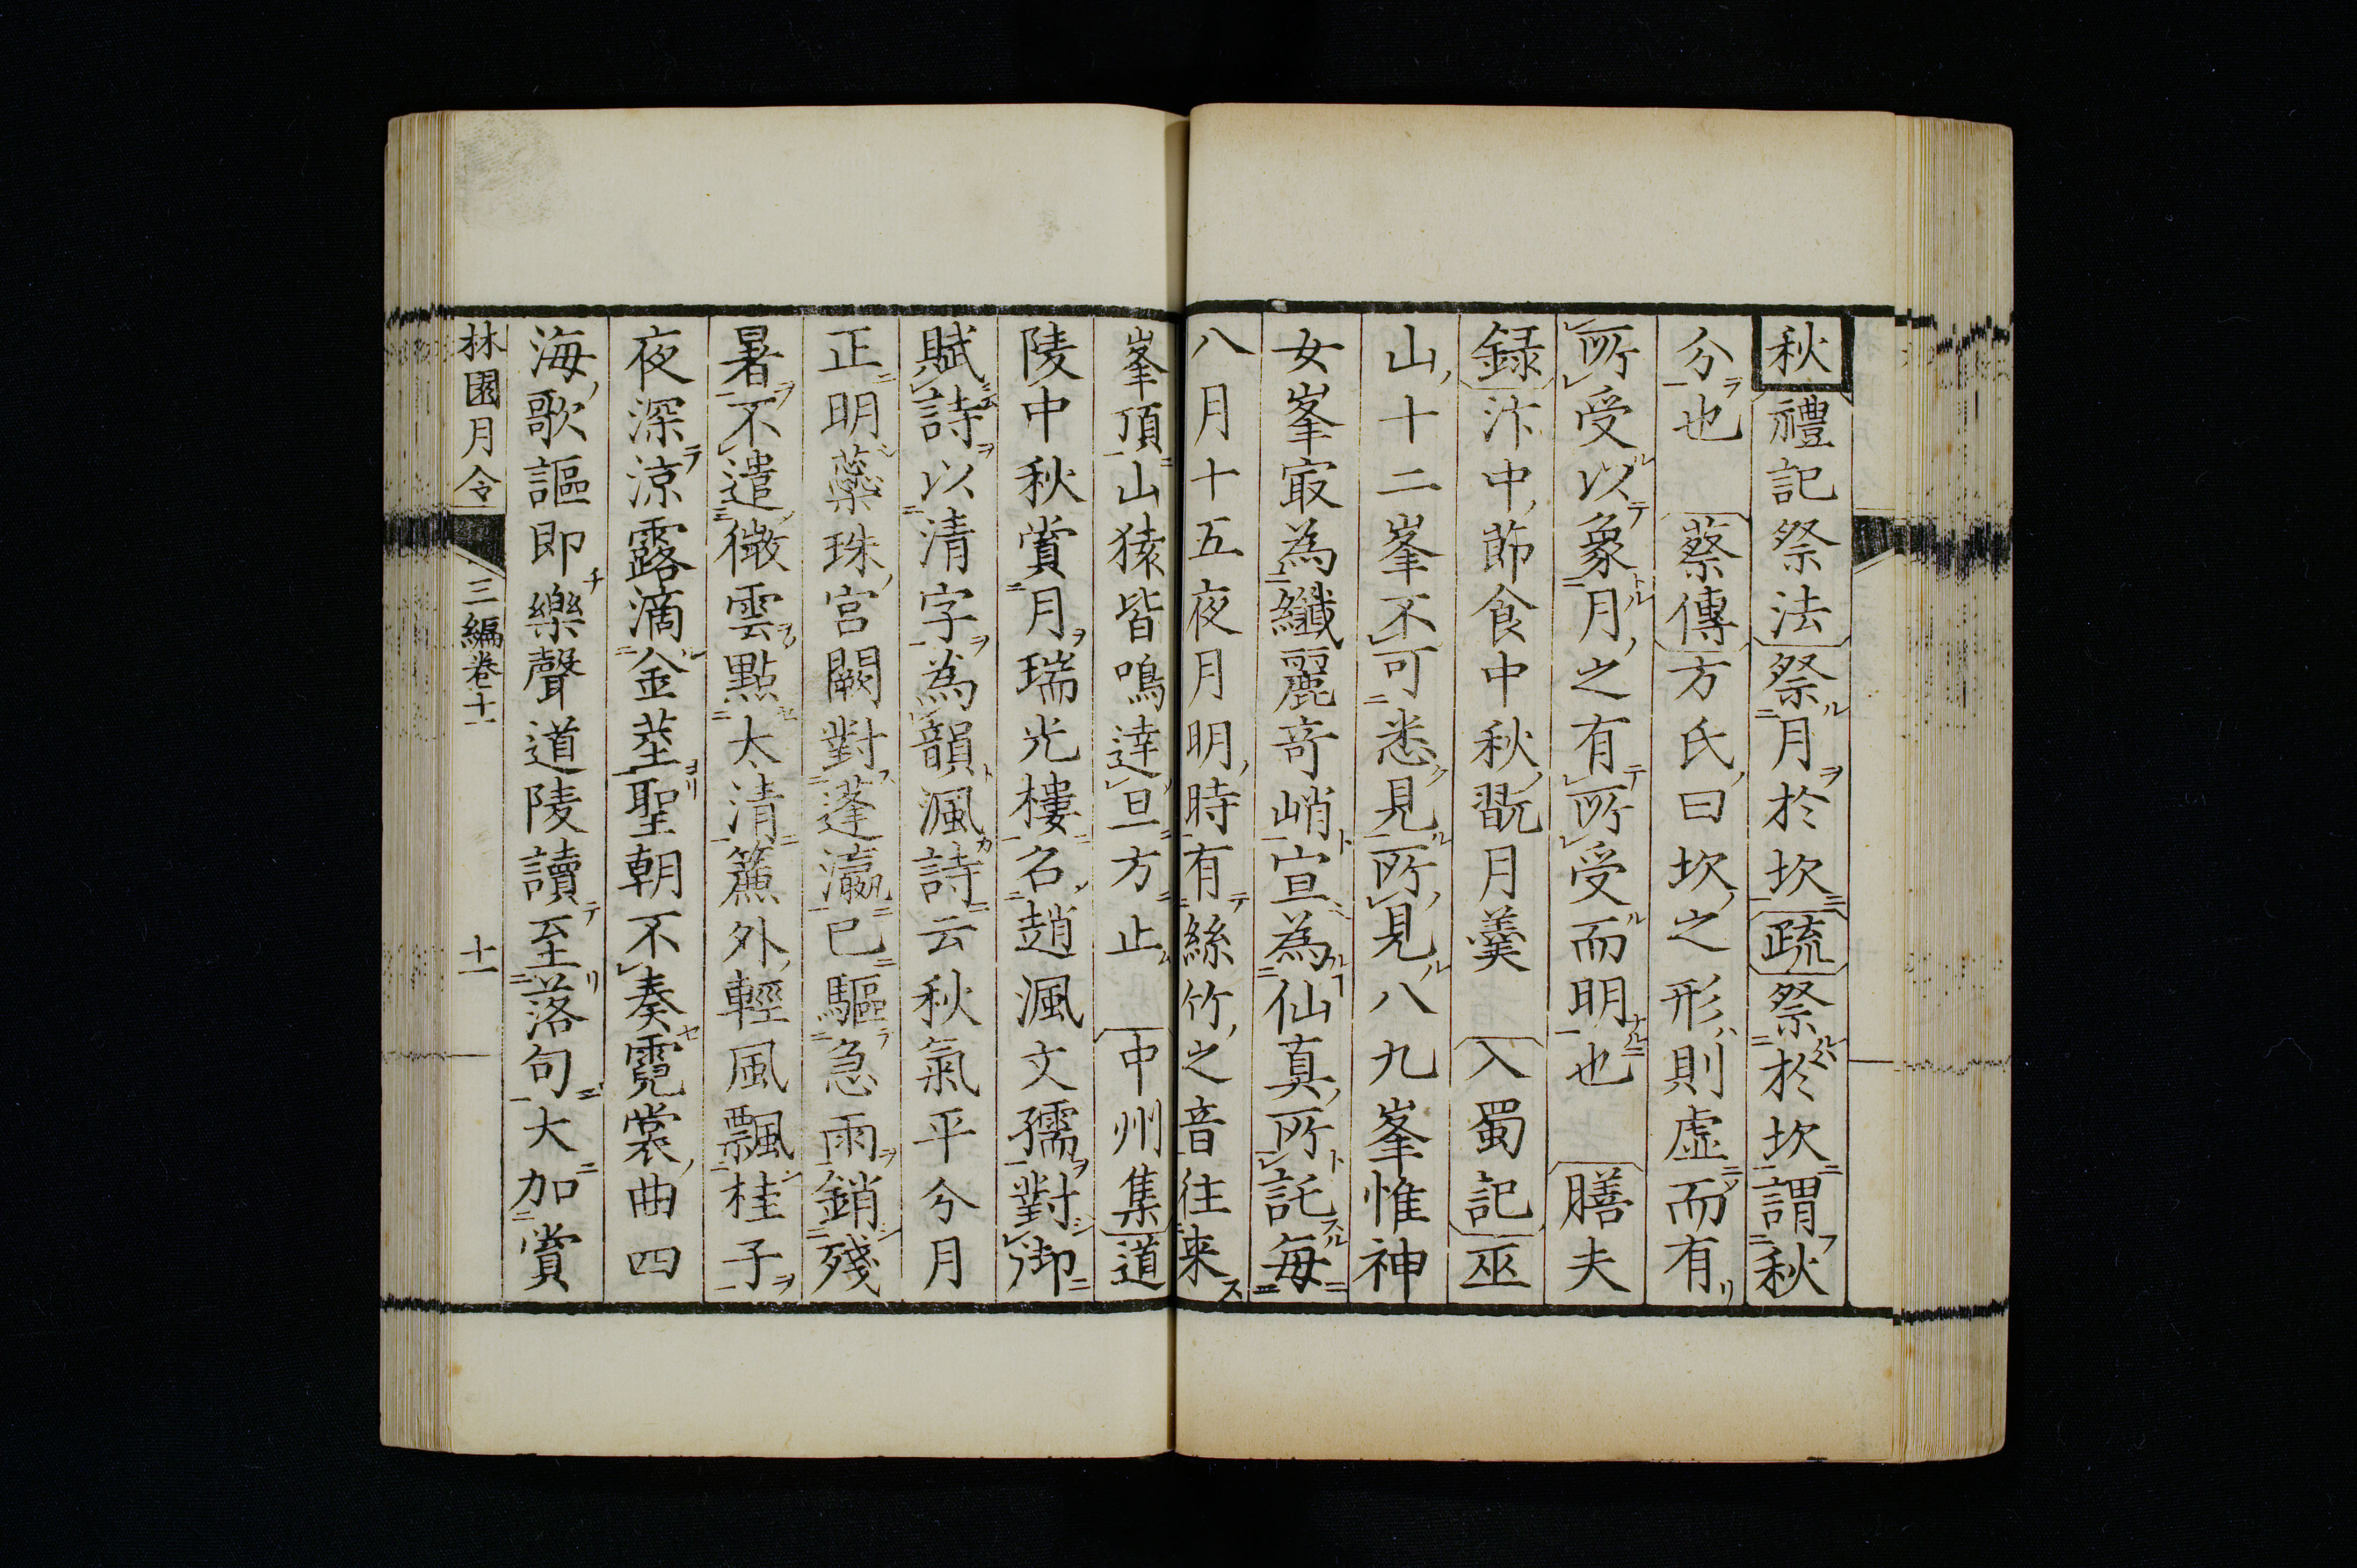 秋禮記祭法祭月於坎疏祭於坎謂秋
分也 蔡傳方氏曰坎之形則虛而有
所受以象月之有所受而明也 膳夫
録汴中節食中秋翫月羹 入蜀記巫
山十二峯不可悉見所見八九峯惟神
女峯㝡為纖麗奇峭宜為仙真所託每
八月十五夜月明時有絲竹之音往来
峯頂山猿皆鳴達旦方止 中州集道
陵中秋賞月瑞光樓名趙渢文孺對御
賦詩以清字為韻渢詩云秋氣平分月
正明蘂珠宮闕對蓬瀛已驅急雨銷殘
暑不遣微雲點太清簾外輕風飄桂子
夜深涼露滴金莖聖朝不奏霓裳曲四
海歌謳即樂聲道陵讀至落句大加賞
林園月令 三編卷十一 十一